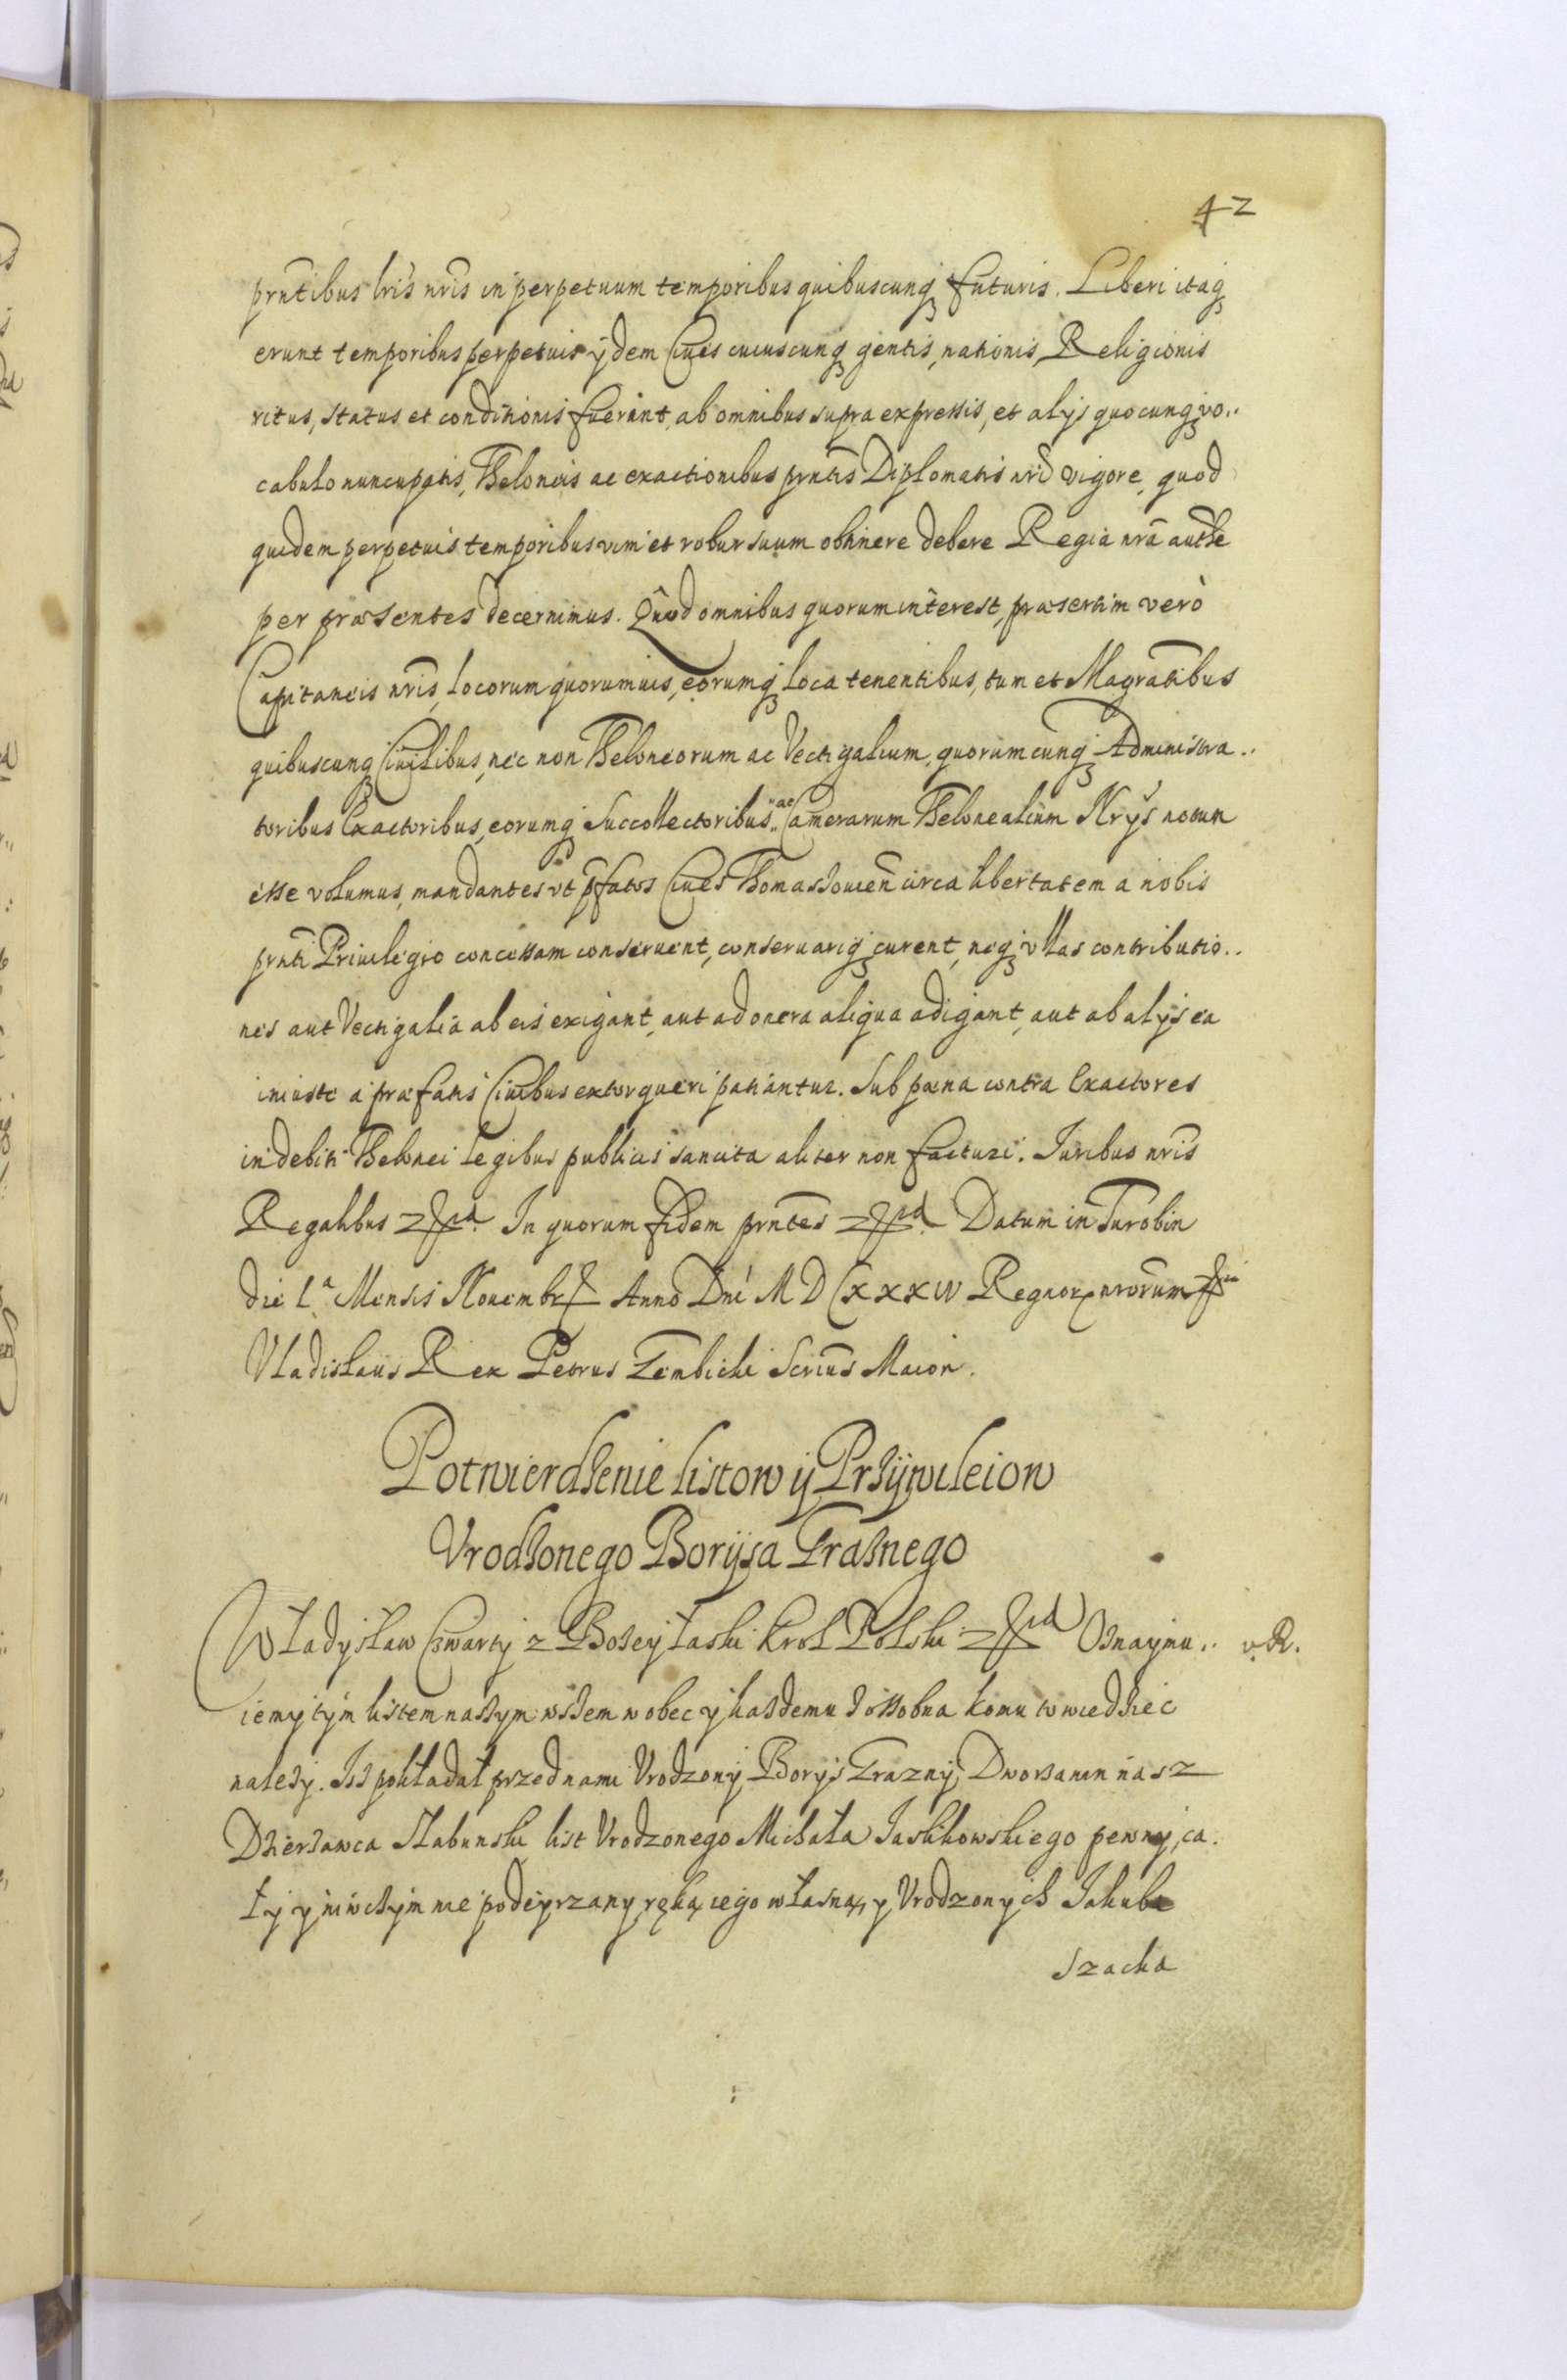 42
prntibus lris nris in perpetuum temporibus quibuscunq futuris. Liberi itaq
erunt temporibus perpetuis ijdem Ciues cuiuscunq gentis, nationis, Religionis
ritus, status et conditionis fuerint, ab omnibus supra expressis, et alijs quocunq vo..
cabulo nuncupatis, Theloneis ac exactionibus prntis Diplomatis nri vigore, quod
quidem perpetuis temporibus vim et robur suum obtinere debere Regia nra authe
per præsentes decernimus. Quod omnibus quorum interest, præsertim verò
Capitaneis nris, locorum quorumuis, eorumq loca tenentibus, tum et Magratibus
quibuscunq Ciuilibus, nec non Theloneorum ac Vectigalium, quorumcunq Administra..
toribus Exactoribus, eorumq Succollectoribus ac Camerarum Thelonealium Nrijs notum
esse volumus, mandantes vt pfatos Ciues Thomassouien circa libertatem a nobis
prnti Priuilegio concessam conseruent, conseruariq curent, neq vllas contributio..
nes aut Vectigalia ab eis exigant, aut ad onera aliqua adigant, aut ab alijs ea
iniuste a præfatis Ciuibus extorqueri patiantur. Sub pœna contra Exactores
indebiti Thelonei legibus publicis sancita aliter non facturi. Iuribus nris
Regalibus In quorum fidem prntes Datum in Turobin
die L.a Mensis Nouembr Anno Dni M D C x x x iv Regnor nrorum
Vladislaus Rex Petrus Gembicki Scrius Maior.
Potwierdzenie listow ij Przijwileiow
Vrodzonego Borijsa Graznego
Władysław Czwarty z Bozey łaski Krol Polski Oznaymu.. v. R.
iemy tym listem naszym wszem wobec y kazdemu z ossobna komu to wiedziec
nalezy. Isz pokładał przed nami Vrodzony Borys Grazny, Dworzanin nasz
Dzierzawca list Vrodzonego Michała Jaslikowskiego pewny, ca.
ły y niwczym nie podeyrzany, ręką iego własną, y Vrodzonych Jakuba
Szacka